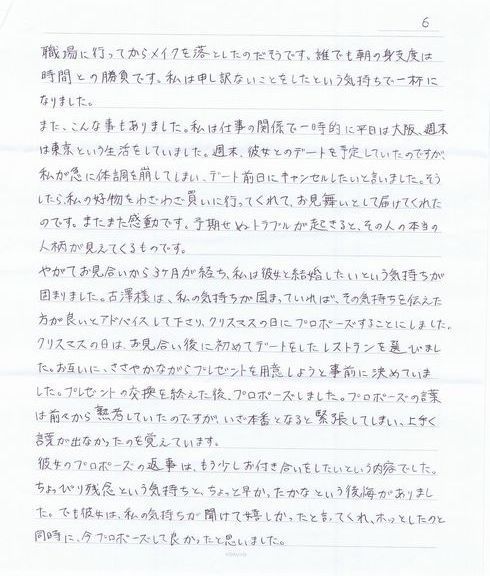 6
職場に行ってからメイクを落としたのだそうです。誰でも朝の身支度は
時間との勝負です。私は申し訳ないことをしたという気持ちで一杯に
なりました。
また、こんな事もありました。私は仕事の関係で一時的に平日は大阪、週末
は東京という生活をしていました。週末、彼女とのデートを予定していたのですが、
私が急に体調を崩してしまい、デート前日にキャンセルしたいと言いました。そう
したら、私の好物をわざわざ買いに行ってくれて、お見舞いとして届けてくれた
のです。またまた感動です。予期せぬトラブルが起きると、その人の本当の
人柄が見えてくるものです。
やがてお見合いから3ヶ月が経ち、私は彼女と結婚したいという気持ちが
固まりました。古澤様は、私の気持ちが固まっていれば、その気持ちを伝えた
方が良いとアドバイスして下さり、クリスマスの日にプロポーズすることにしました。
クリスマスの日は、お見合い後に初めてデートをしたレストランを選びまし
た。お互いに、ささやかながらプレゼントを用意しようと事前に決めていま
した。プレゼントの交換を終えた後、プロポーズしました。プロポーズの言葉
は前々から熟考していたのですが、いざ本番となると緊張してしまい、上手く
言葉が出なかったのを覚えています。
彼女のプロポーズの返事は、もう少しお付き合いをしたいという内容でした。
ちょっぴり残念という気持ちと、ちょっと早かったかなという後悔がありまし
た。でも彼女は、私の気持ちが聞けて嬉しかったと言ってくれ、ホッとしたのと
同時に、今プロポーズして良かったと思いました。